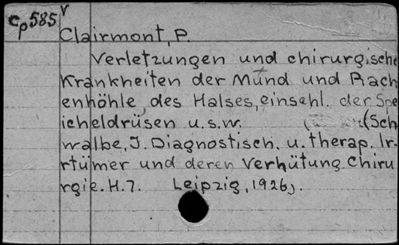 Cp585v
Clairmont, P.
Verletzungen und chirurgische
Krankheiten der Mund und Rach
enhöhle, des Halses, einschl. der Spe
icheldrüsen u.s.w. (Sch
walbe, J. Diagnostisch. u. therap. Ir-
rtümer und deren Verhütung. Chiru
rgie. H.7. Leipzig, 1926).